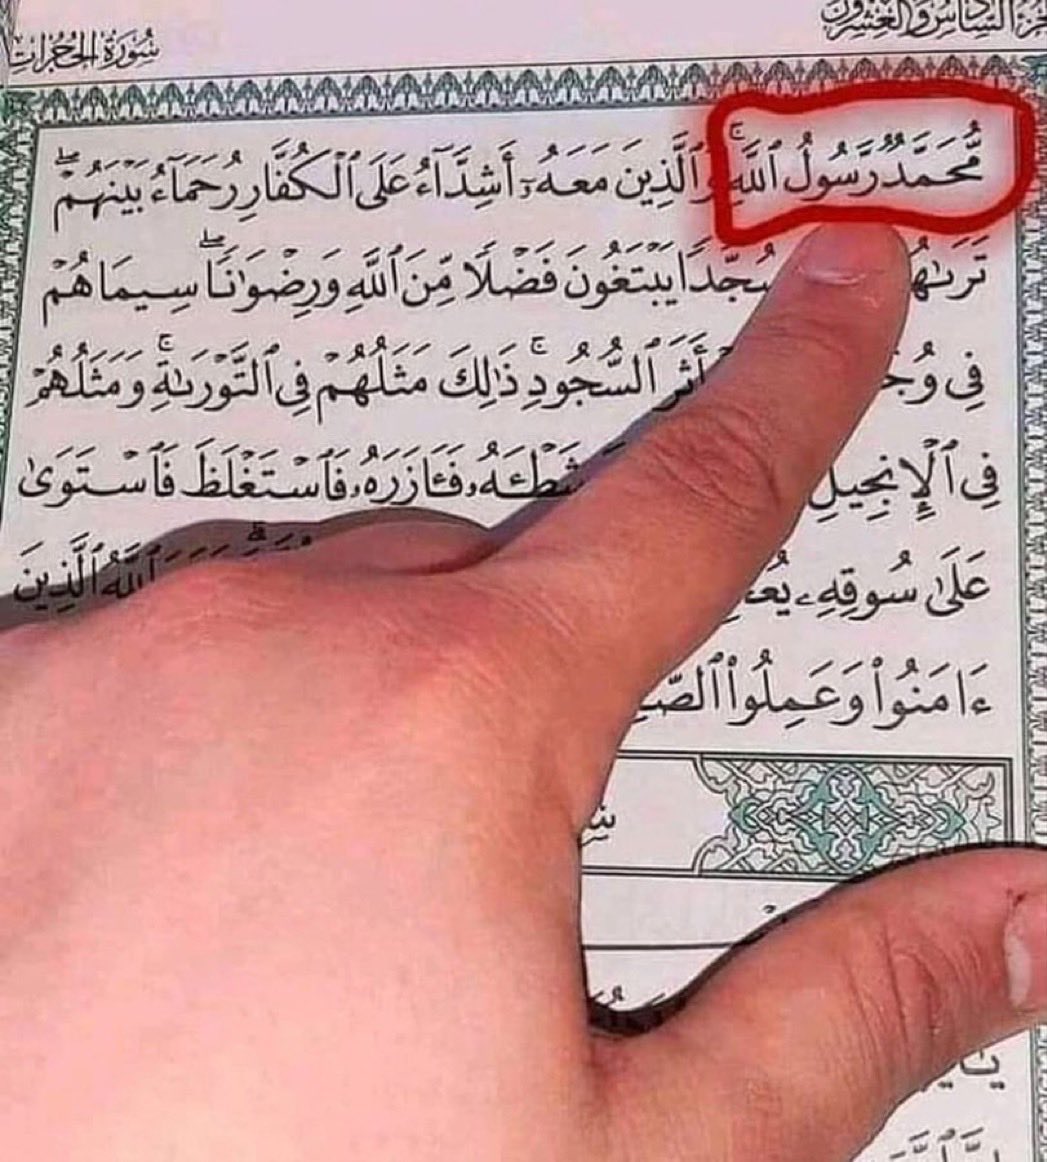 الجزء السادس والعشرون
سورة الحجرات
مُّحَمَّدٌ رَّسُولُ ٱللَّهِۚ وَٱلَّذِينَ مَعَهُۥٓ أَشِدَّآءُ عَلَى ٱلْكُفَّارِ رُحَمَآءُ بَيْنَهُمْۖ
تَرَىٰهُمْ سُجَّدًا يَبْتَغُونَ فَضْلًا مِّنَ ٱللَّهِ وَرِضْوَٰنًاۖ سِيمَاهُمْ
فِى أَثَرِ ٱلسُّجُودِۚ ذَٰلِكَ مَثَلُهُمْ فِى ٱلتَّوْرَىٰةِۚ وَمَثَلُهُمْ
فِى ٱلْإِنجِيلِ شَطْـَٔهُۥ فَـَٔازَرَهُۥ فَٱسْتَغْلَظَ فَٱسْتَوَىٰ
عَلَىٰ سُوقِهِۦ ٱللَّهُ ٱلَّذِينَ
ءَامَنُوا۟ وَعَمِلُوا۟